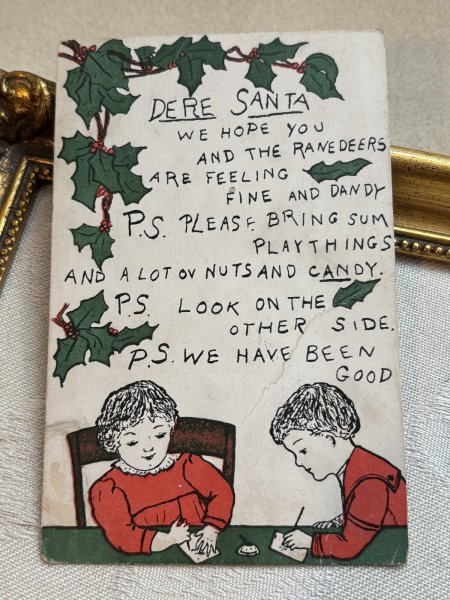 DERE SANTA
WE HOPE YOU
AND THE RANEDEERS
ARE FEELING
FINE AND DANDY
P.S. PLEASE BRING SUM
PLAYTHINGS
AND A LOT OV NUTS AND CANDY.
P.S. LOOK ON THE
OTHER SIDE.
P.S. WE HAVE BEEN
GOOD